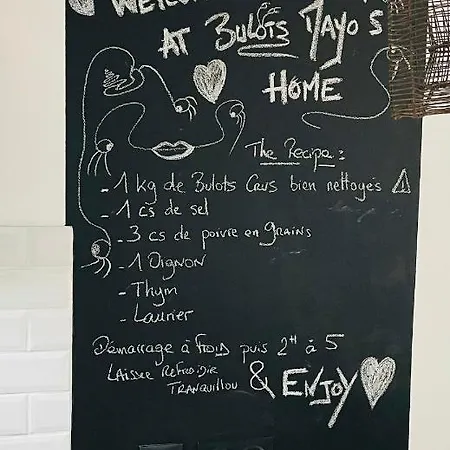 WELCOME
AT BULOTS MAYO'S
HOME
The Recipe :
- 1 kg de Bulots Crus bien nettoyés ⚠
- 1 cs de sel
- 3 cs de poivre en GRAINS
- 1 OIGNON
- Thym
- Laurier
Démarrage à froid puis 2H à 5
LAISSER REFROIDIR
TRANQUILLOU
& ENJOY